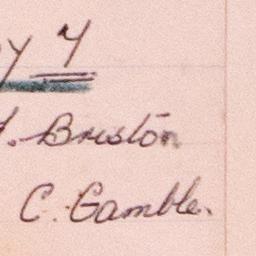 y 4
. Briston
C. Gamble.